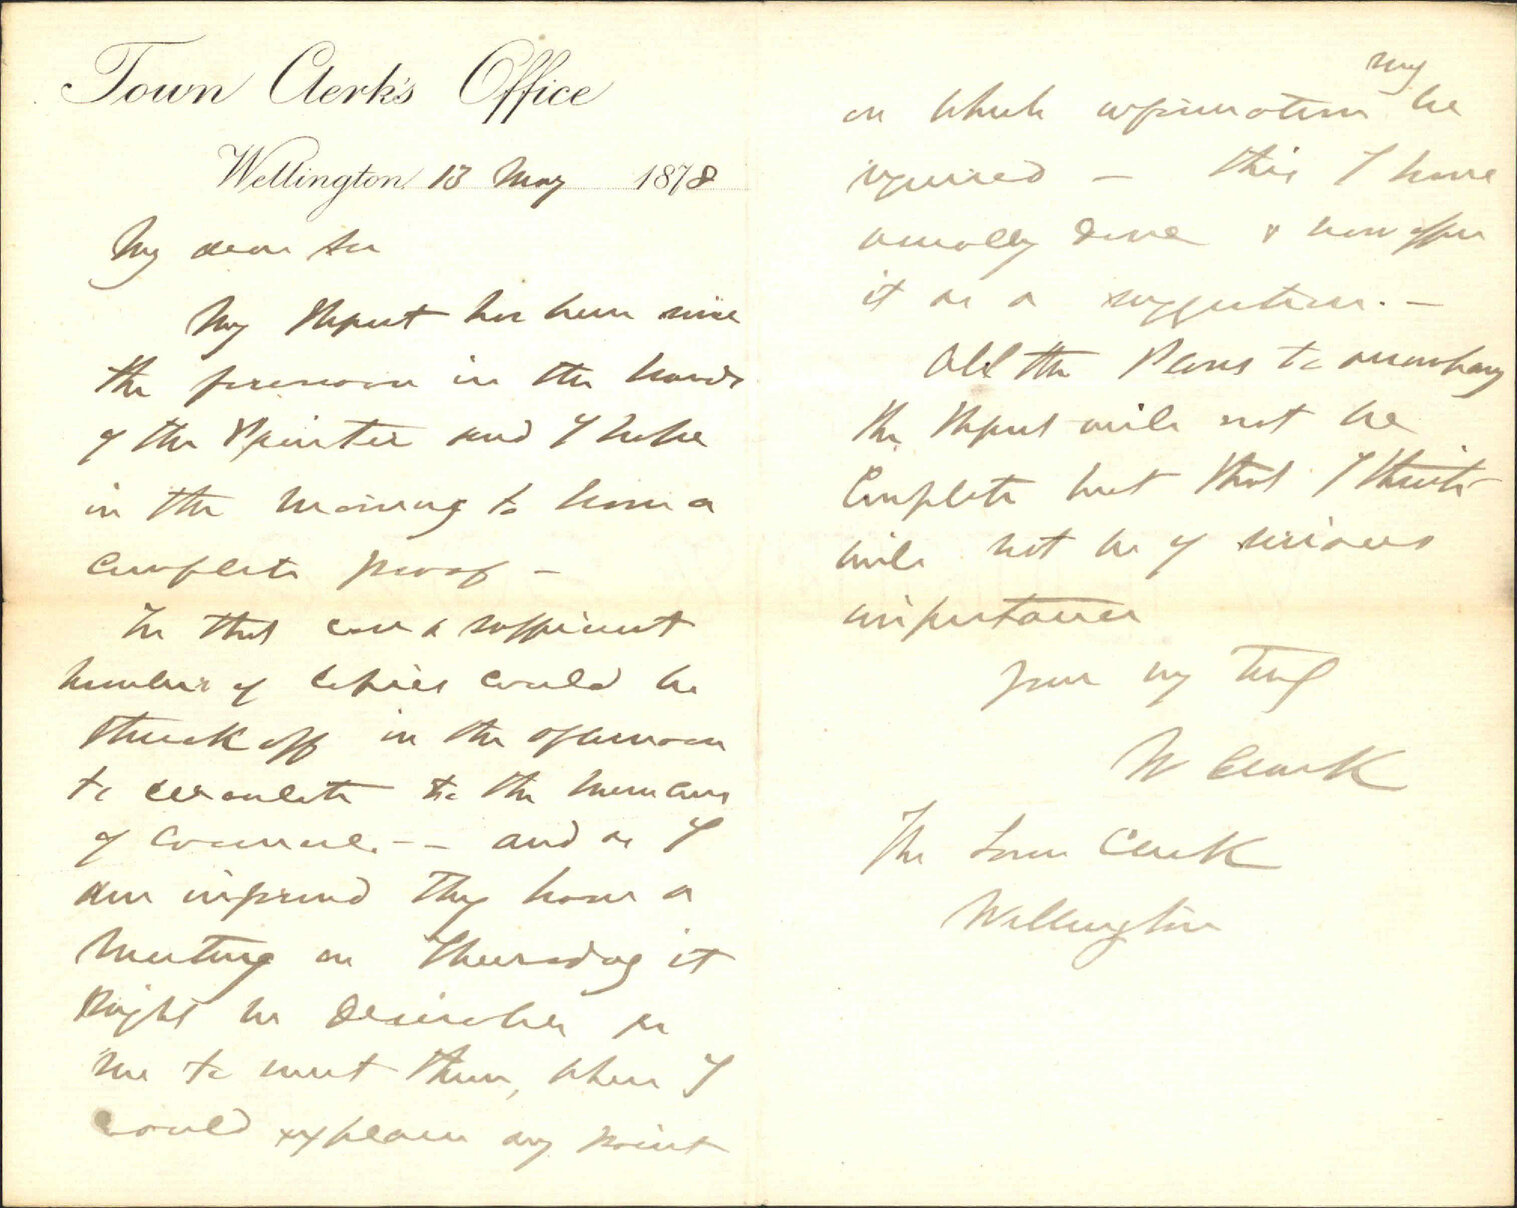 Town Clerk's Office
Wellington 13 May 1878
My dear Sir
My Report has been since
the forenoon in the hands
of the Printer and I hope
in the morning to have a
complete proof -
In that case a sufficient
number of Copies could be
struck off in the afternoon
to circulate to the members
of Council. - - and as I
am informed they have a
meeting on Thursday it
might be desirable for
me to meet them, when I
could explain any point
on which information may be
required - this I have
usually done & now offer
it as a suggestion. -
All the Plans to accompany
the Report will not be
Complete but that I think
will not be of serious
importance
Yours very truly
W Clark
The Town Clerk
Wellington